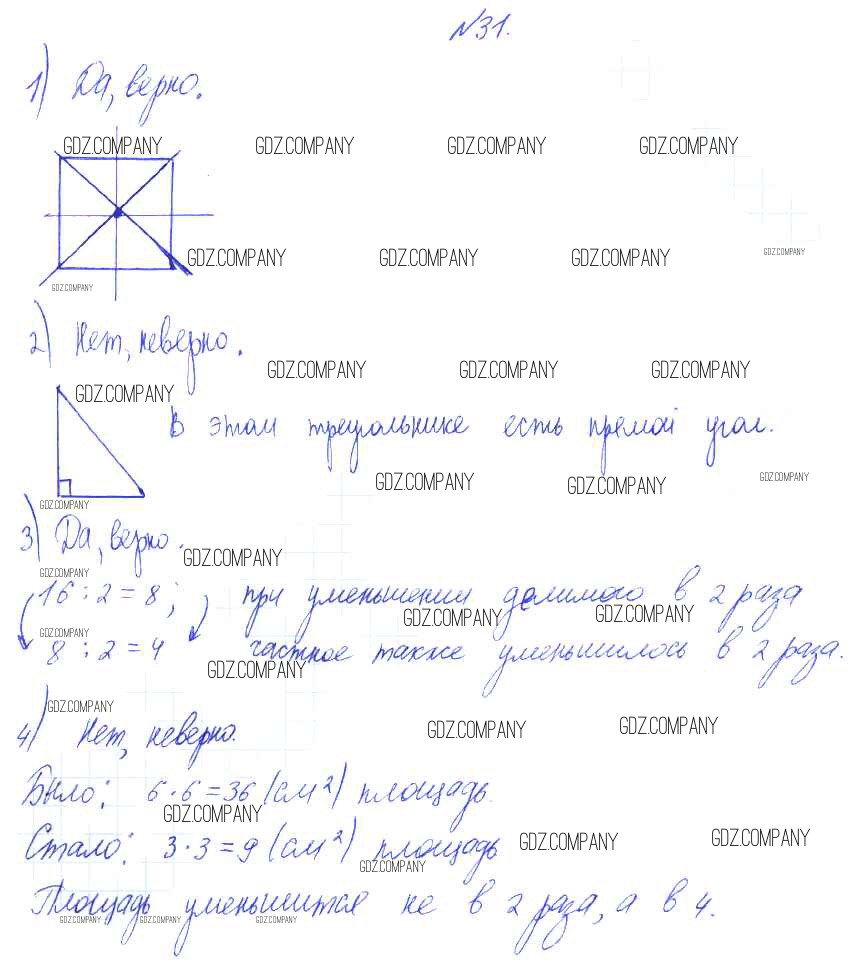 №31.
1) Да, верно.
GDZ.COMPANY GDZ.COMPANY GDZ.COMPANY GDZ.COMPANY
GDZ.COMPANY GDZ.COMPANY GDZ.COMPANY GDZ.COMPANY
GDZ.COMPANY
2) Нет, неверно.
GDZ.COMPANY GDZ.COMPANY GDZ.COMPANY
GDZ.COMPANY
В этом треугольнике есть прямой угол.
GDZ.COMPANY GDZ.COMPANY GDZ.COMPANY
GDZ.COMPANY
3) Да, верно.
GDZ.COMPANY
GDZ.COMPANY
16 : 2 = 8; при уменьшении делимого в 2 раза
GDZ.COMPANY GDZ.COMPANY
GDZ.COMPANY
8 : 2 = 4 частное также уменьшилось в 2 раза.
GDZ.COMPANY
GDZ.COMPANY
4) Нет, неверно.
GDZ.COMPANY GDZ.COMPANY
Было: 6 · 6 = 36 (см²) площадь.
GDZ.COMPANY
Стало: 3 · 3 = 9 (см²) площадь
GDZ.COMPANY GDZ.COMPANY
GDZ.COMPANY
Площадь уменьшится не в 2 раза, а в 4.
GDZ.COMPANY GDZ.COMPANY GDZ.COMPANY